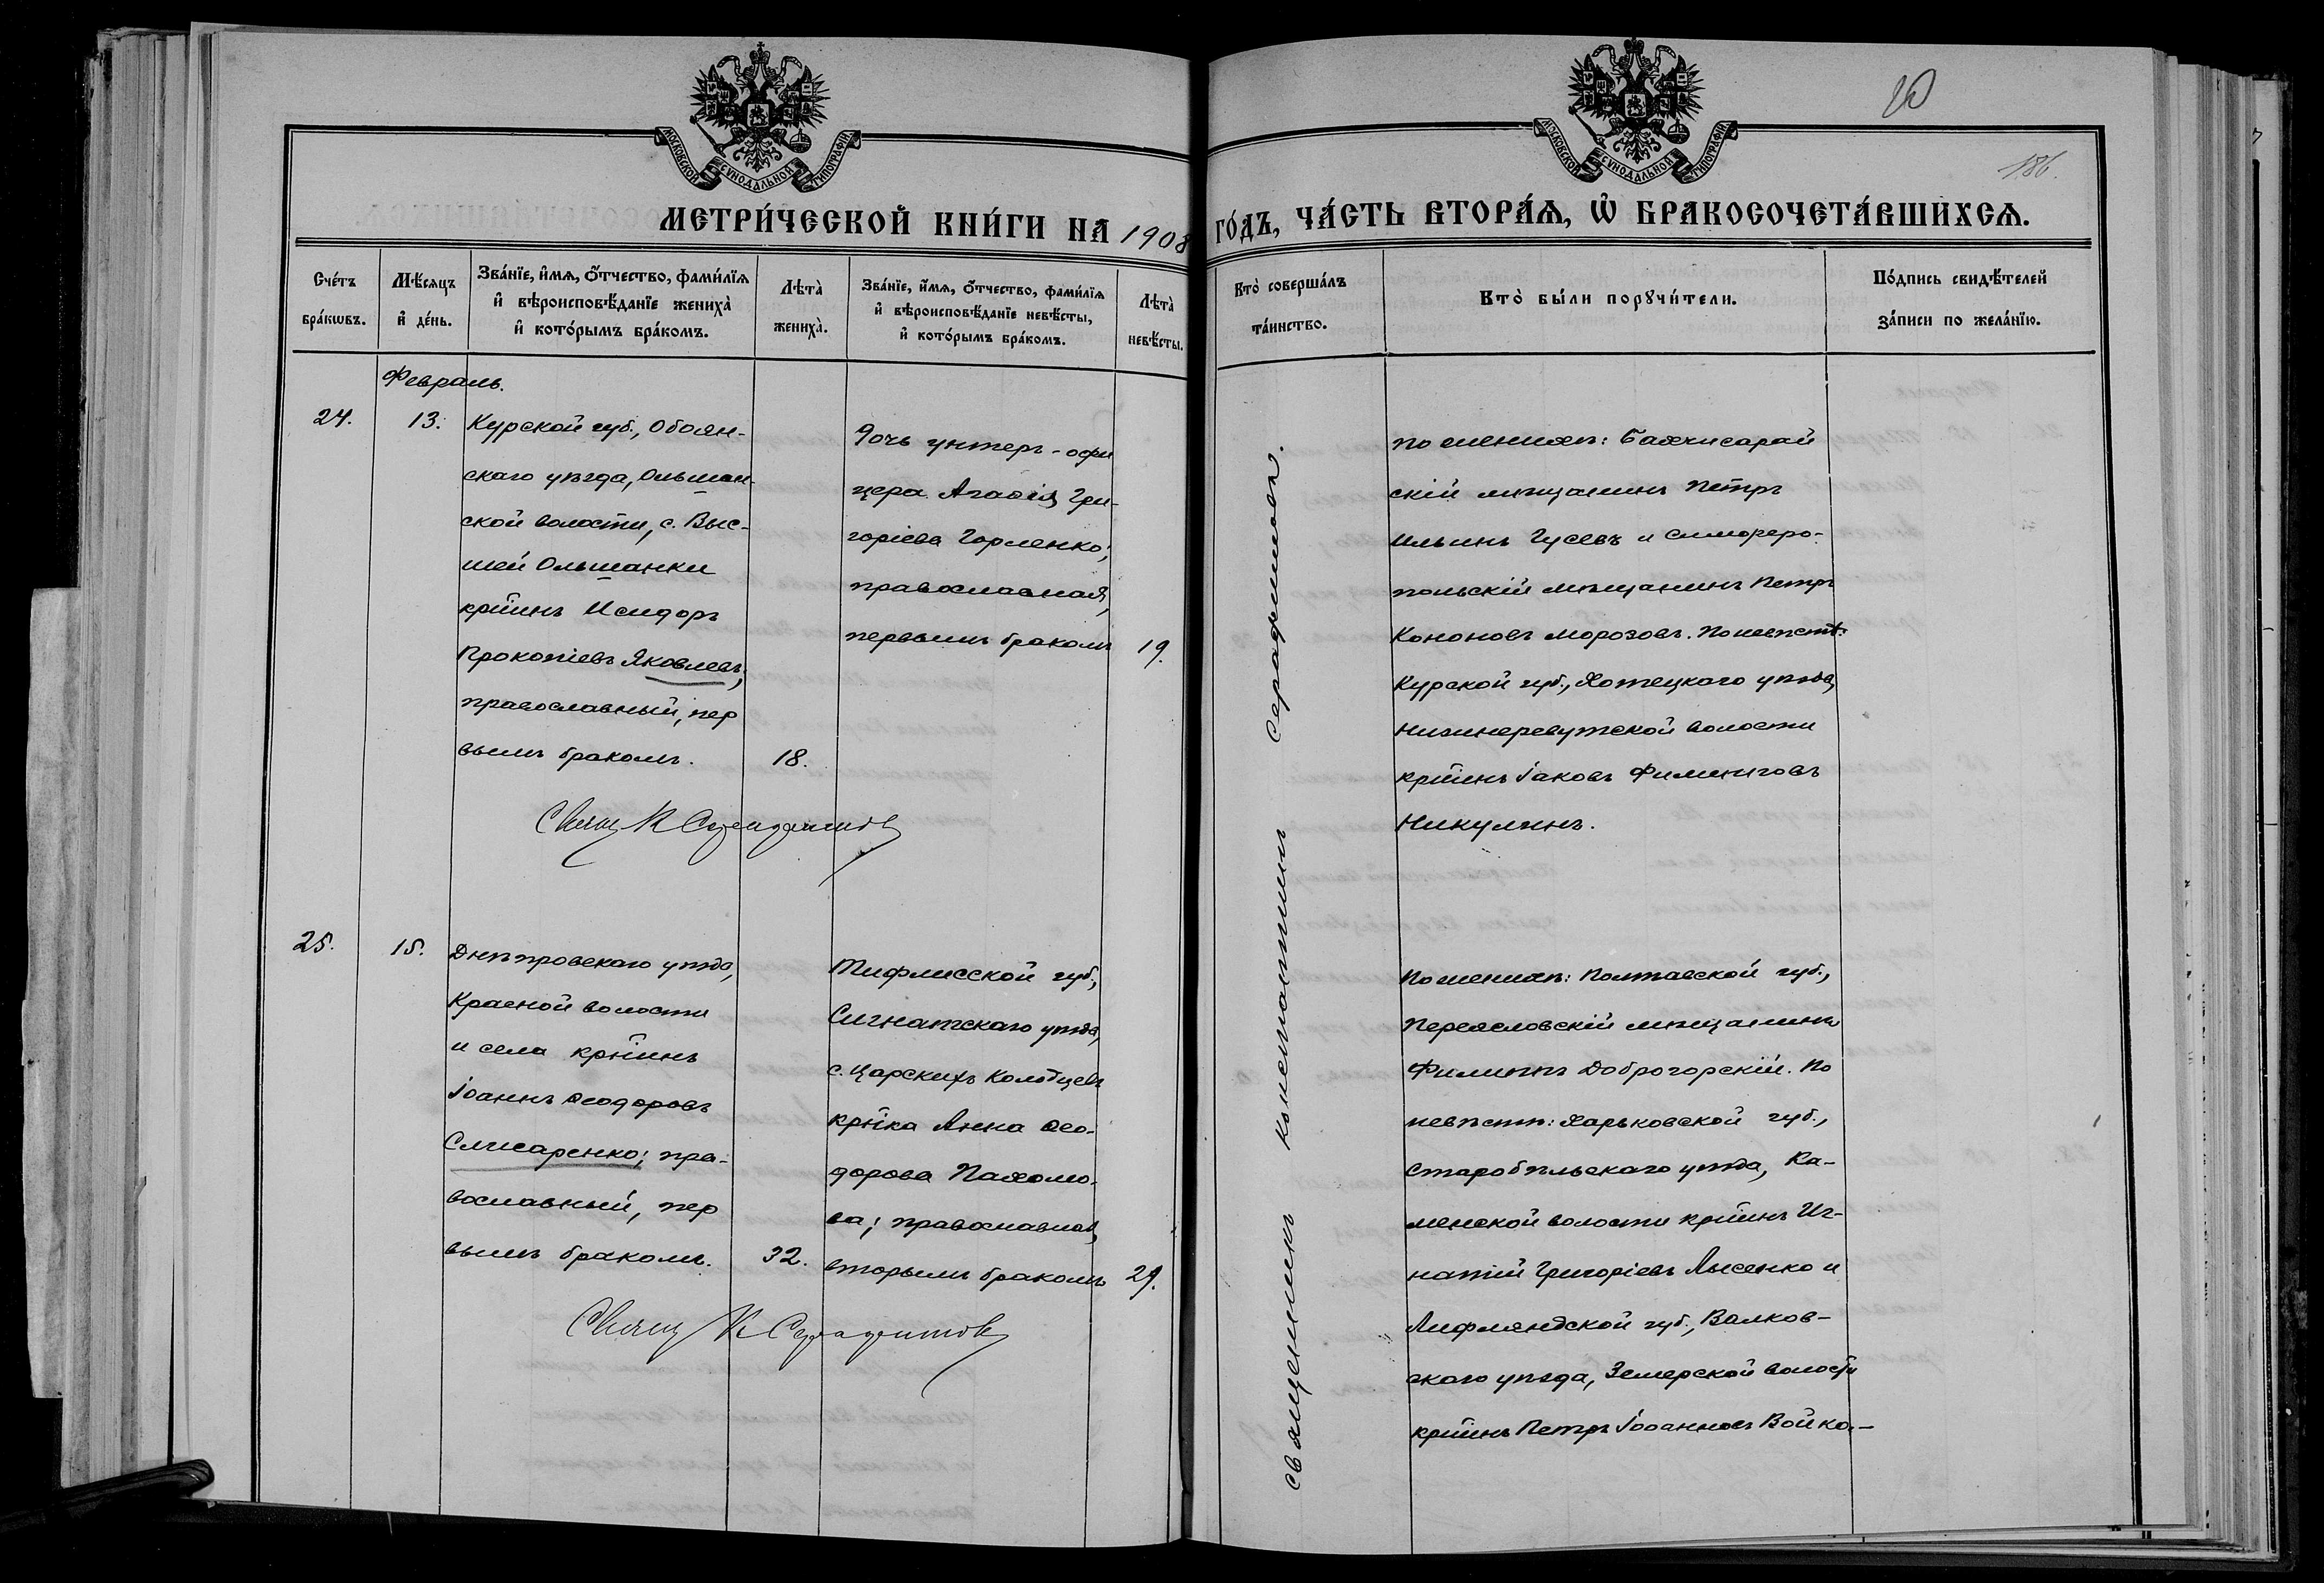 20
186.
МОСКОВСКОЙ СУНОДАЛЬНОЙ ТИПОГРАФІИ
МОСКОВСКОЙ СУНОДАЛЬНОЙ ТИПОГРАФІИ
МЕТРИ́ЧЕСКОЙ КНИ́ГИ НА 1908 ГО́ДЪ, ЧА́СТЬ ВТОРА́Ѧ, Ѽ БРАКОСОЧЕТА́ВШИХСѦ.
Сче́тъ бра́кѡвъ.
Мѣ́сѧцъ и҆ де́нь.
Зва́нїе, и҆́мѧ, ѻ҆́тчество, фами́лїѧ
и҆ вѣроисповѣ́данїе жениха̀
и҆ кото́рымъ бра́комъ.
Лѣта̀ жениха̀.
Зва́нїе, и҆́мѧ, ѻ҆́тчество, фами́лїѧ
и҆ вѣроисповѣ́данїе невѣ́сты,
и҆ кото́рымъ бра́комъ.
Лѣта̀ невѣ́сты.
Кто̀ соверша́лъ
та́инство.
Кто̀ бы́ли порꙋчи́тели.
По́дпись свидѣ́телей
за́писи по жела́нїю.
Февраль.
24.
13.
Курской губ., Обоян-
скаго уѣзда, Ольшан-
ской волости, с. Выс-
шей Ольшанки
кр̃инъ Исидоръ
Прокопіевъ Яковлевъ,
православный, пер
вымъ бракомъ.
18.
Дочь унтеръ-офи
цера Агафія Гри-
горіева Горленко;
православная,
первымъ бракомъ
19.
Свящ К Серафимов
Священникъ Константинъ Серафимовъ.
по женихѣ: Бахчисарай
скій мѣщанинъ Петръ
Ильинъ Гусевъ и Симферо-
польскій мѣщанинъ Петръ
Кононовъ Морозовъ. По невѣстѣ:
Курской губ., уѣзда,
волости
кр̃инъ Іаковъ
Никулинъ.
25.
15.
Днѣпровскаго уѣзда,
Красной волости
и села кр̃инъ
Іоаннъ Ѳеодоровъ
Слисаренко; пра-
вославный, пер
вымъ бракомъ.
32.
Тифлисской губ.,
Сигнахскаго уѣзда,
с. Царскихъ Колодцевъ
кр̃ка Анна Ѳео-
дорова Пахомо-
ва; православная,
вторымъ бракомъ
29.
Свящ К Серафимов
По женихѣ: Полтавской губ.,
Переясловскій мѣщанинъ
Филиппъ Доброгорскій. По
невѣстѣ: Харьковской губ.,
Старобѣльскаго уѣзда, Ка-
менской волости кр̃инъ Иг-
натій Григоріевъ Лысенко и
Лифляндской губ., Валков-
скаго уѣзда, Земерской волости
кр̃инъ Петръ Іоанновъ Войко.-